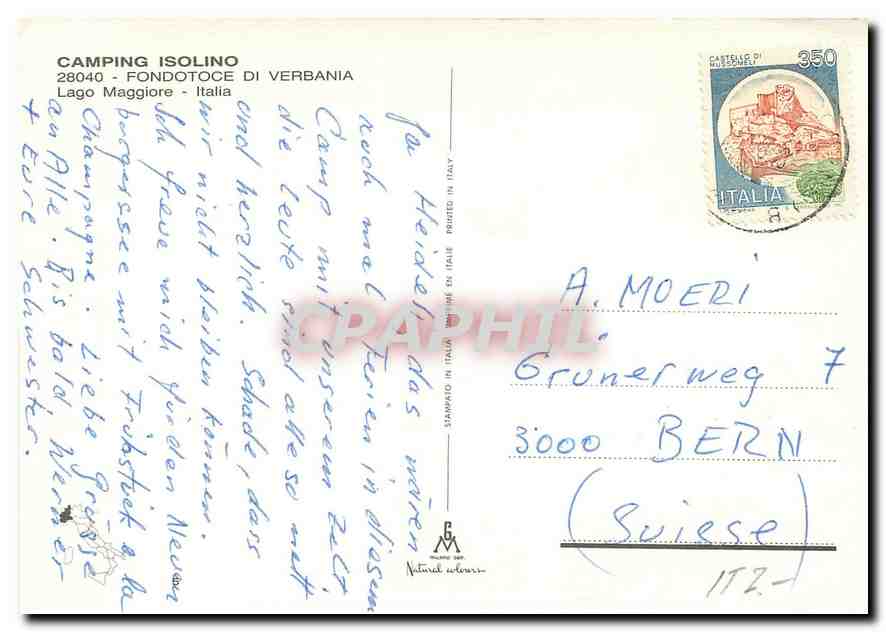 CAMPING ISOLINO
28040 - FONDOTOCE DI VERBANIA
Lago Maggiore - Italia
Ja Heidele das wären
noch mal Ferien in diesem
Camp mit unserem Zelt
die leute sind alle so nett
und herzlich. Schade, dass
wir nicht bleiben können.
Ich freue mich für den
burgersee mit Frühstück a la
Champagne. Liebe Grüsse
an Alle. Bis bald Werner
+ Eure Schwester.
STAMPATO IN ITALIA IMPRIMÉ EN ITALIE PRINTED IN ITALY
CASTELLO DI
MUSSOMELI
350
ITALIA
A. MOERI
Grünerweg 7
3000 BERN
(Suisse)
GM
Natural colours
ITZ.-
CPAPHIL